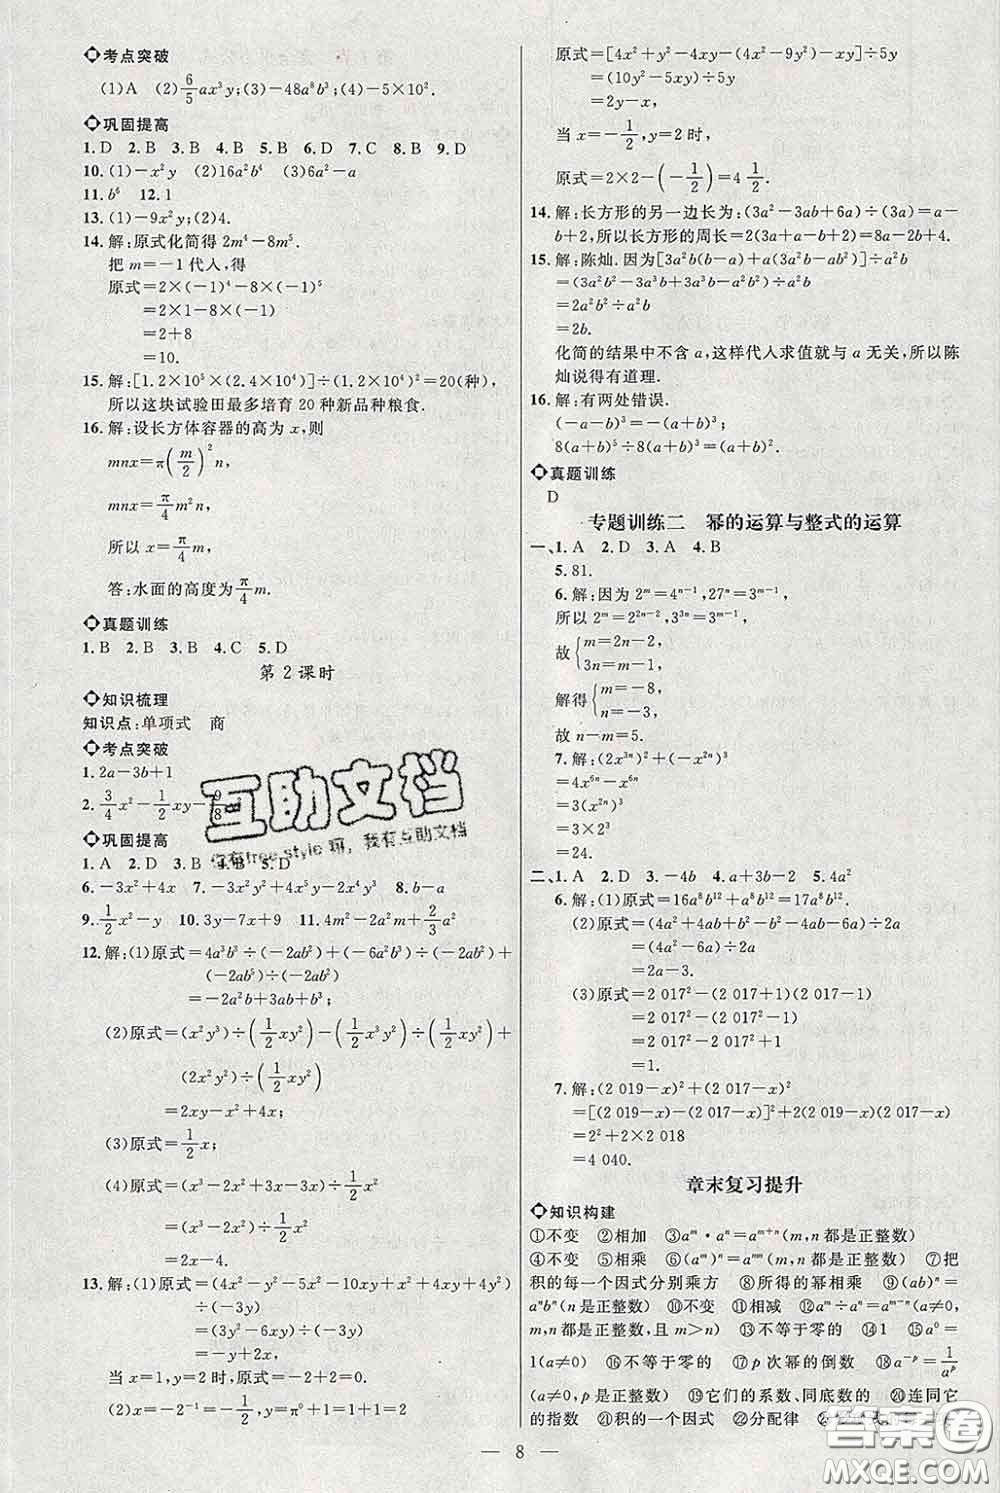 考点突破
(1)A (2)6/5ax³y;(3)-48a⁸b³;(4)-5×10².
巩固提高
1.D 2.B 3.B 4.B 5.D 6.D 7.C 8.B 9.D
10.(1)-x²y (2)16a²b⁴ (3)6a²-a
11.b⁶ 12.1
13.(1)-9x²y;(2)4.
14.解:原式化简得 2m⁴-8m⁵.
把 m=-1 代人,得
原式=2×(-1)⁴-8×(-1)⁵
=2×1-8×(-1)
=2+8
=10.
15.解:[1.2×10⁵×(2.4×10⁴)]÷(1.2×10⁴)²=20(种),
所以这块试验田最多培育 20 种新品种粮食.
16.解:设长方体容器的高为 x,则
mnx=π(m/2)²n,
mnx=π/4m²n,
所以 x=π/4m,
答:水面的高度为π/4m.
真题训练
1.B 2.B 3.B 4.C 5.D
第 2 课时
知识梳理
知识点:单项式 商
考点突破
1.2a-3b+1
2.3/4x²-1/2xy-9/8
巩固提高
1.A 2.D 3.B 4.B 5.D
6.-3x²+4x 7.-3x²y²+5xy-2x⁴y³ 8.b-a
9.1/2x²-y 10.3y-7x+9 11.4m²-2a²m+2/3a²
12.解:(1)原式=4a³b³÷(-2ab²)+(-6a²b³)÷(-2ab²)+
(-2ab⁵)÷(-2ab²)
=-2a²b+3ab+b³;
(2)原式=(x²y³)÷(1/2xy²)-(1/2x³y²)÷(1/2xy²)+
(2x²y²)÷(1/2xy²)
=2xy-x²+4x;
(3)原式=1/2x;
(4)原式=(x³-2x²+x²-x²)÷1/2x²
=(x³-2x²)÷1/2x²
=2x-4.
13.解:(1)原式=(4x²-y²-5x²-10xy+x²+4xy+4y²)
÷(-3y)
=(3y²-6xy)÷(-3y)
=-y+2x,
当 x=1,y=2 时,原式=-2+2=0.
(2)x=-2⁻¹=-1/2,y=π⁰+1=1+1=2
原式=[4x²+y²-4xy-(4x²-9y²)-xy]÷5y
=(10y²-5xy)÷5y
=2y-x,
当 x=-1/2,y=2 时,
原式=2×2-(-1/2)=4 1/2.
14.解:长方形的另一边长为:(3a²-3ab+6a)÷(3a)=a-
b+2,所以长方形的周长=2(3a+a-b+2)=8a-2b+4.
15.解:陈灿.因为[3a²b(b-a)+a(3a²b-ab²)]÷a²b
=(3a²b²-3a³b+3a³b-a²b²)÷a²b
=2a²b²÷a²b
=2b.
化简的结果中不含 a,这样代人求值就与 a 无关,所以陈
灿说得有道理.
16.解:有两处错误.
(-a-b)³=-(a+b)³;
8(a+b)⁵÷8(a+b)³=(a+b)².
真题训练
D
专题训练二 幂的运算与整式的运算
一、1.A 2.D 3.A 4.B
5.81.
6.解:因为 2ᵐ=4ⁿ⁻¹,27ⁿ=3ᵐ⁻¹,
所以 2ᵐ=2²ⁿ⁻²,3³ⁿ=3ᵐ⁻¹,
故{m=2n-2,
3n=m-1,
解得{m=-8,
n=-3,
故 n-m=5.
7.解:(2x³ⁿ)²-(x²ⁿ)³
=4x⁶ⁿ-x⁶ⁿ
=3(x²ⁿ)³
=3×2³
=24.
二、1.A 2.D 3.-4b 4.a+3b-2 5.4a²
6.解:(1)原式=16a⁸b¹²+a⁸b¹²=17a⁸b¹².
(2)原式=(4a²+4ab+b²-4ab-b²-6a)÷2a
=(4a²-6a)÷2a
=2a-3.
(3)原式=2 017²-(2 017+1)(2 017-1)
=2 017²-(2 017²-1)
=2 017²-2 017²+1
=1.
7.解:(2 019-x)²+(2 017-x)²
=[(2 019-x)-(2 017-x)]²+2(2 019-x)(2 017-x)
=2²+2×2 018
=4 040.
章末复习提升
知识构建
①不变 ②相加 ③aᵐ·aⁿ=aᵐ⁺ⁿ(m,n都是正整数)
④不变 ⑤相乘 ⑥(aᵐ)ⁿ=aᵐⁿ(m,n都是正整数) ⑦把
积的每一个因式分别乘方 ⑧所得的幂相乘 ⑨(ab)ⁿ=
aⁿbⁿ(n是正整数) ⑩不变 ⑪相减 ⑫aᵐ÷aⁿ=aᵐ⁻ⁿ(a≠0,
m,n都是正整数,且 m>n) ⑬不等于零的 ⑭1 ⑮a⁰=
1(a≠0) ⑯不等于零的 ⑰p次幂的倒数 ⑱a⁻ᵖ=1/aᵖ
(a≠0,p是正整数) ⑲它们的系数、同底数的幂 ⑳连同它
的指数 ㉑积的一个因式 ㉒分配律
— 8 —
互助文档
你有free style 嘛, 我有互助文档
答案圈
MXQE.COM